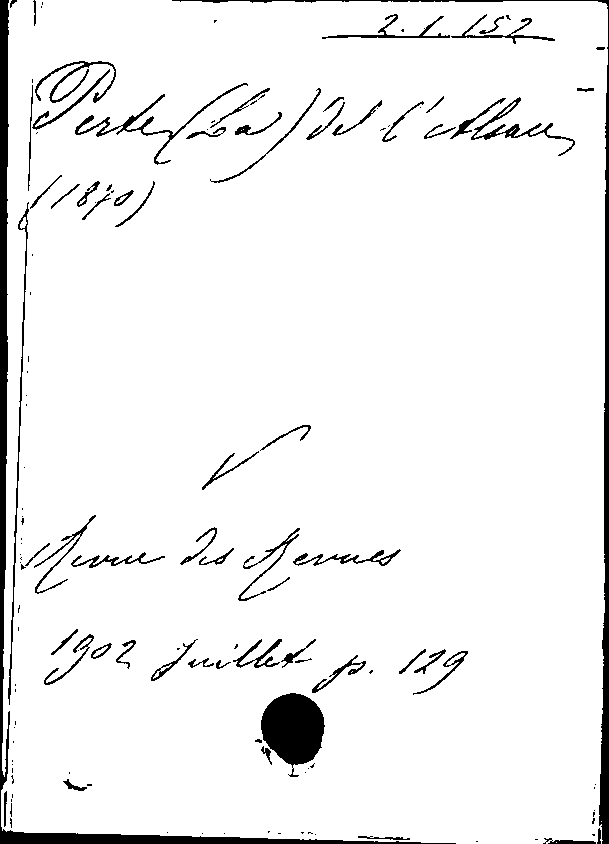 2.1.152
Perte (La) de l'Alsace
(1870)
Revue des Revues
1902 Juillet p. 129